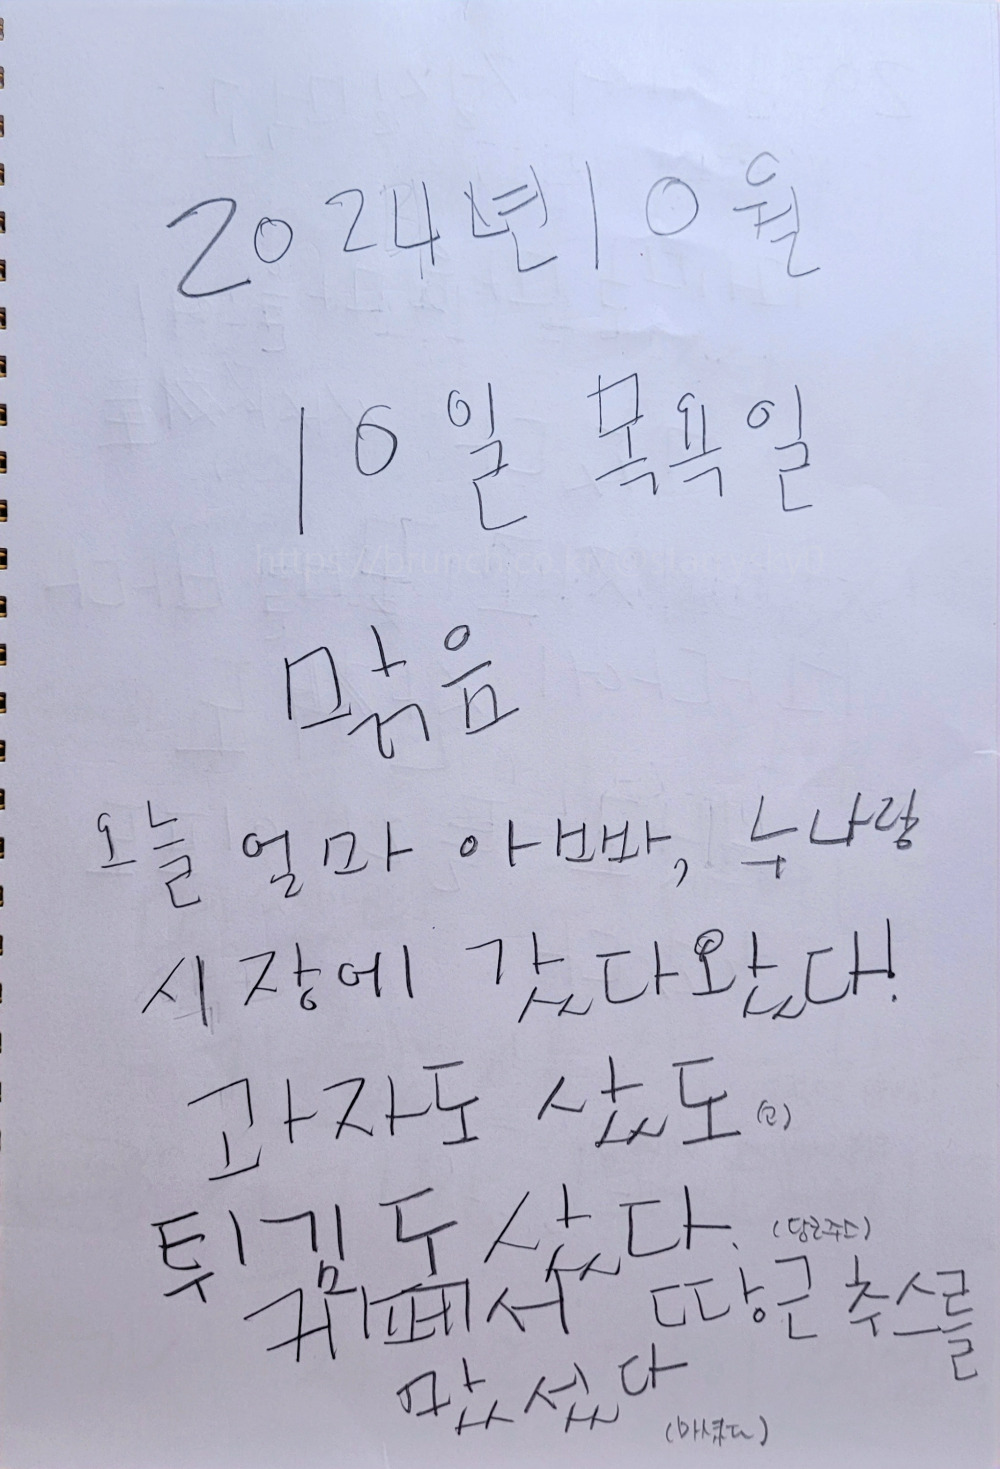 2024년 10월
10일 목욕일
맑음
오늘 얼마 아빠, 누나랑
시장에 갔다왔다!
과자도 샀도 (고)
튀김두 샀다. (당근주스)
귀페서 땅근 추스를
맜셨다
(마셨다)